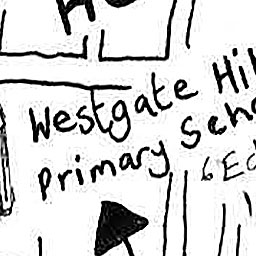 Westgate Hil
Primary Scho